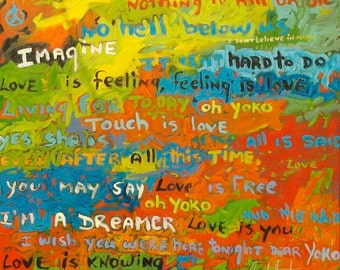 NOTHING TO KILL OR DIE
NO hell below us
I don't believe in
IMAGINE
IT ISN'T HARD to DO
LOVE is feeling, feeling is love
LIVING FOR TODAY oh YOKO
Touch is love
yes she is AFTER ALL is SAID
EVEN AFTER all this TIME.
LOVE
YOU MAY SAY LOVE is FREE
oh YOKO
I'M A DREAMER LOVE is you
I WISH YOU WERE HERE TONIGHT DEAR YOKO
LOVE is KNOWING